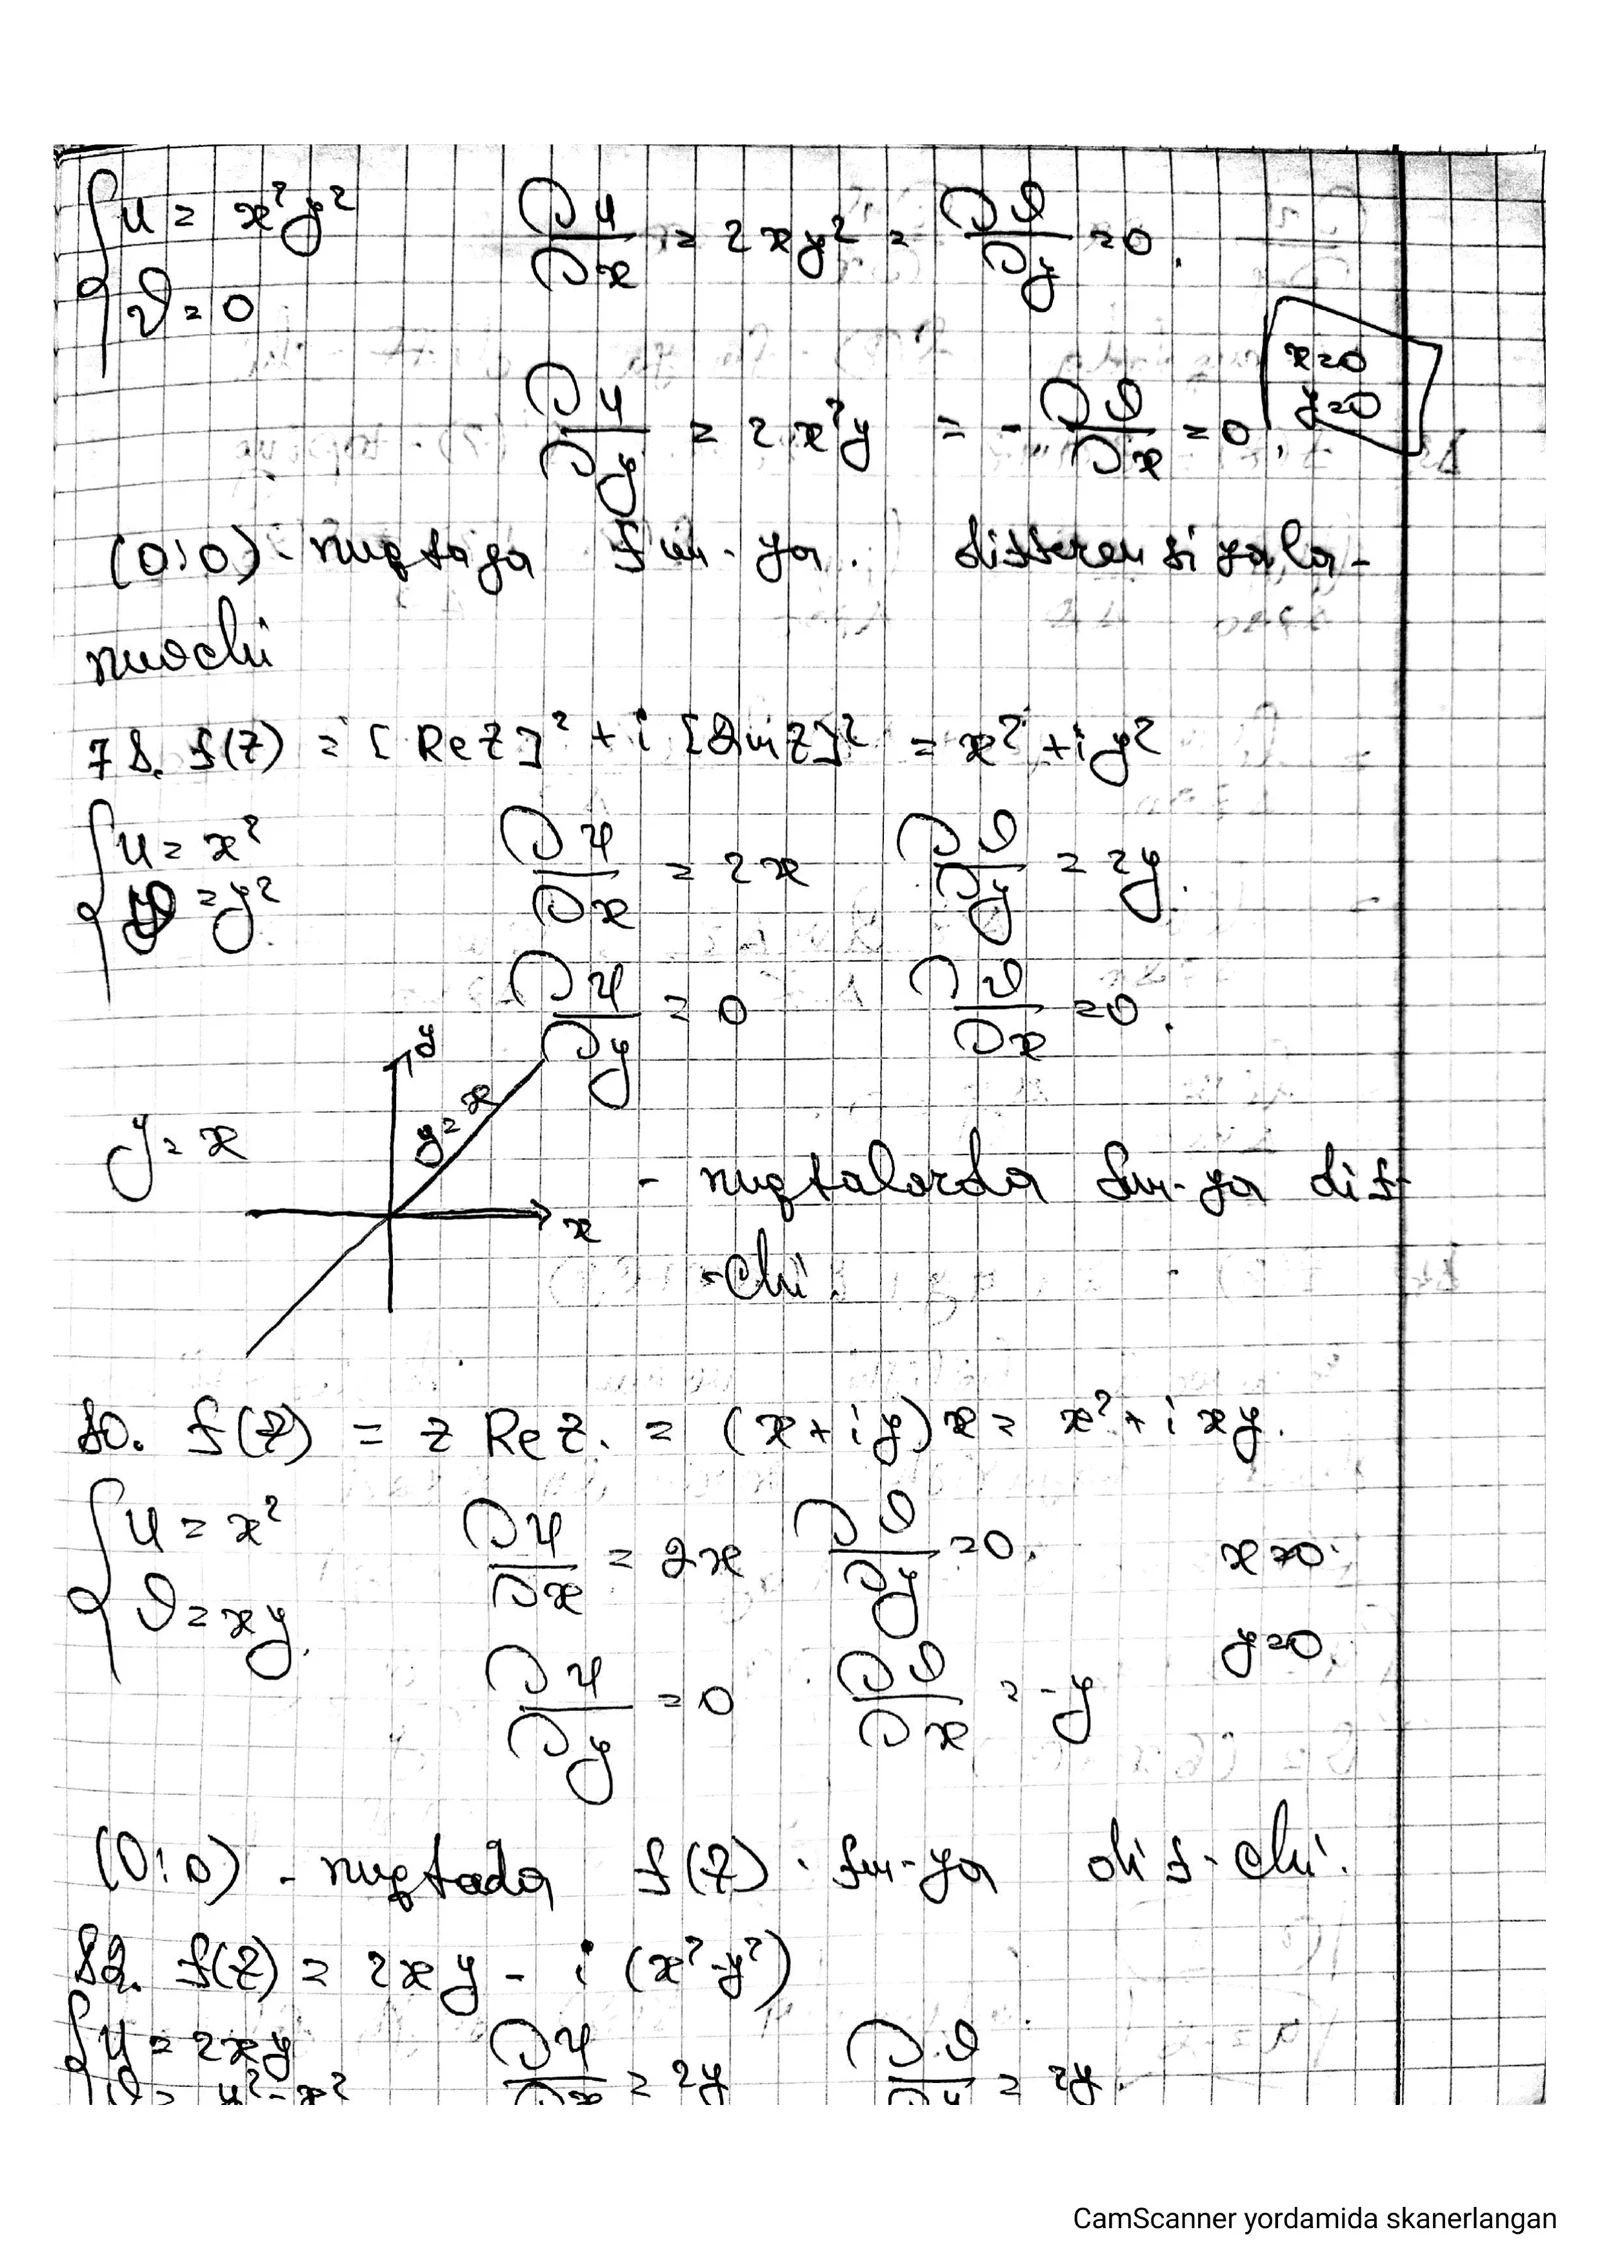 { u = x²y²   ∂u/∂x = 2xy² = ∂ϑ/∂y = 0.
ϑ = 0
x=0
y=0
∂u/∂y = 2x²y = -∂ϑ/∂x = 0.
(0;0) - nuqtaga fun-ya. differensiyala-
nuvchi
78. f(z) = [Re z]² + i [Im z]² = x² + iy²
{ u = x²   ∂u/∂x = 2x   ∂ϑ/∂y = 2y.
ϑ = y²
∂u/∂y = 0   ∂ϑ/∂x = 0.
y
y = x
y = x   - nuqtalarda fun-ya dif-
x
-chi.
80. f(z) = z Re z. = (x+iy)x = x² + ixy.
{ u = x²   ∂u/∂x = 2x   ∂ϑ/∂y = 0.   x=0.
ϑ = xy.   y=0.
∂u/∂y = 0   ∂ϑ/∂x = -y
(0;0) - nuqtada f(z) - fun-ya dif-chi.
82. f(z) = 2xy - i (x²-y²)
{ u = 2xy   ∂u/∂x = 2y   ∂ϑ/∂y = 2y.
ϑ = y²-x²
CamScanner yordamida skanerlangan